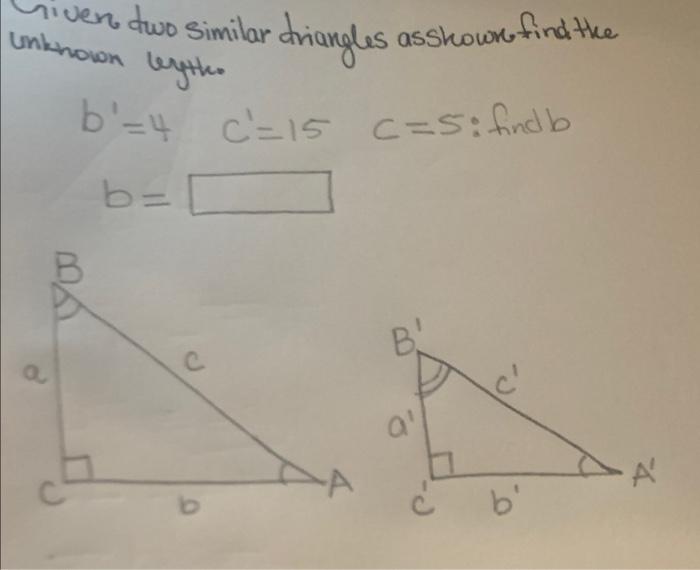 Given two similar triangles as shown find the
unknown length.
b'=4 c'=15 c=5: find b
b=
B
B'
a
c
c'
a'
C
A
A'
b
C'
b'